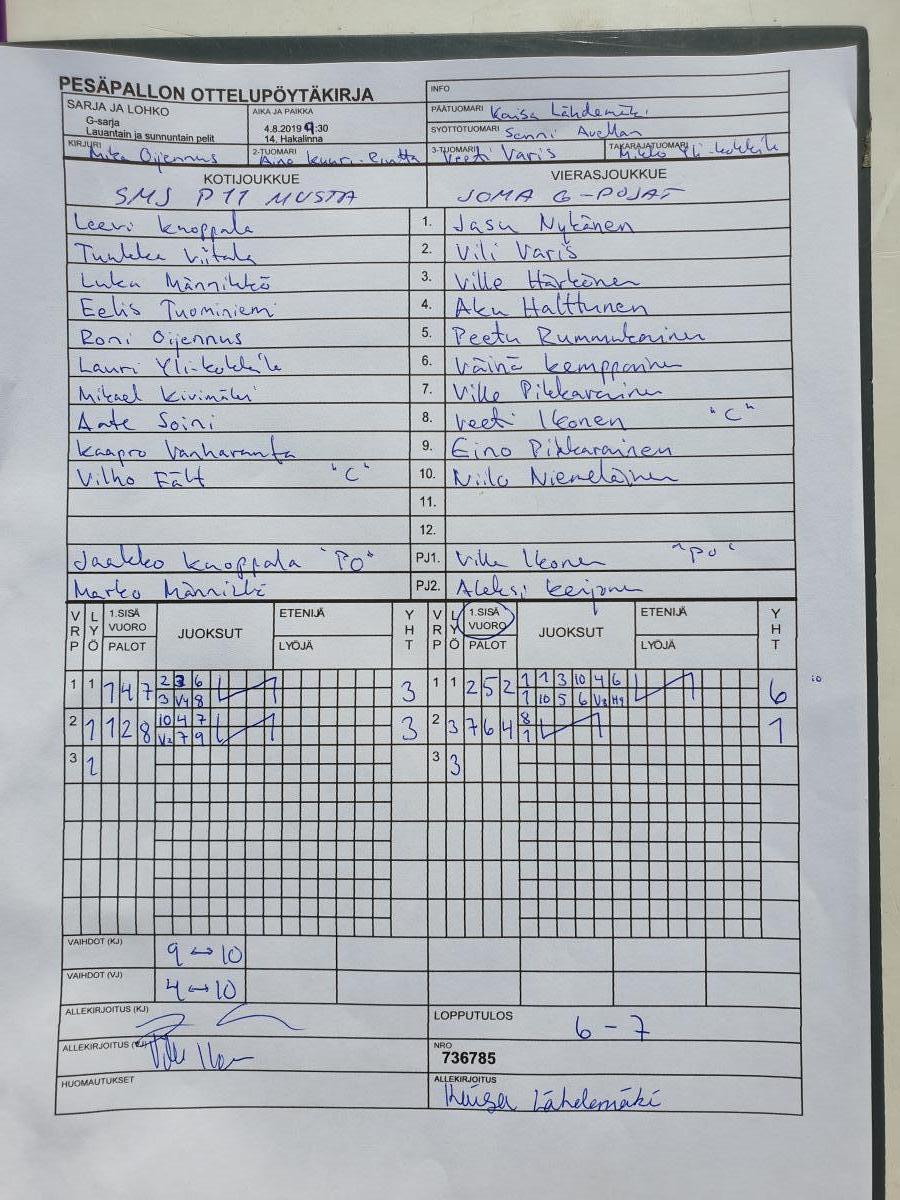 PESÄPALLON OTTELUPÖYTÄKIRJA
INFO
SARJA JA LOHKO
G-sarja
Lauantain ja sunnuntain pelit
AIKA JA PAIKKA
4.8.2019 9:30
14. Hakalinna
PÄÄTUOMARI Kaisa Lähdemäki
SYÖTTÖTUOMARI Sanni Avellan
KIRJURI Mika Oijennus
2-TUOMARI Aino
3-TUOMARI Veeti Varis
TAKARAJATUOMARI Mikko Yli-Kokkila
KOTIJOUKKUE
SMJ P11 MUSTA
VIERASJOUKKUE
JOMA G-POJAT
Leevi Knoppala 1. Jasu Nykänen
Tuukka Viitala 2. Vili Varis
Luka Männikkö 3. Ville Härkönen
Eelis Tuominiemi 4. Aku Halttunen
Roni Oijennus 5. Peetu Rummukainen
Lauri Yli-Kokkila 6. Väinö Kemppainen
Mikael Kivimäki 7. Ville Pikkarainen
Aate Soini 8. Veeti Ikonen "C"
Kaapro Vanharanta 9. Eino Pikkarainen
Vilho Fält "C" 10. Niilo Niemeläinen
11.
12.
Jaakko Knoppala "PO" PJ1. Ville Ikonen "PO"
Marko Männikkö PJ2. Aleksi
VRP LYÖ 1.SISÄ VUORO PALOT JUOKSUT ETENIJÄ LYÖJÄ YHT VRP LYÖ 1.SISÄ VUORO PALOT JUOKSUT ETENIJÄ LYÖJÄ YHT
1 1 1 4 7 2 3 6 3 1 1 2 5 2 1 1 3 10 4 6 6 10
3 V4 8 1 10 5 6 V3 H9
2 1 1 2 8 10 4 7 3 2 3 7 6 4 8 1
V2 7 9 1
3 1 3 3
VAIHDOT (KJ) 9 ↔ 10
VAIHDOT (VJ) 4 ↔ 10
ALLEKIRJOITUS (KJ)
LOPPUTULOS 6 - 7
ALLEKIRJOITUS (VJ)
NRO
736785
HUOMAUTUKSET
ALLEKIRJOITUS
Kaisa Lähdemäki